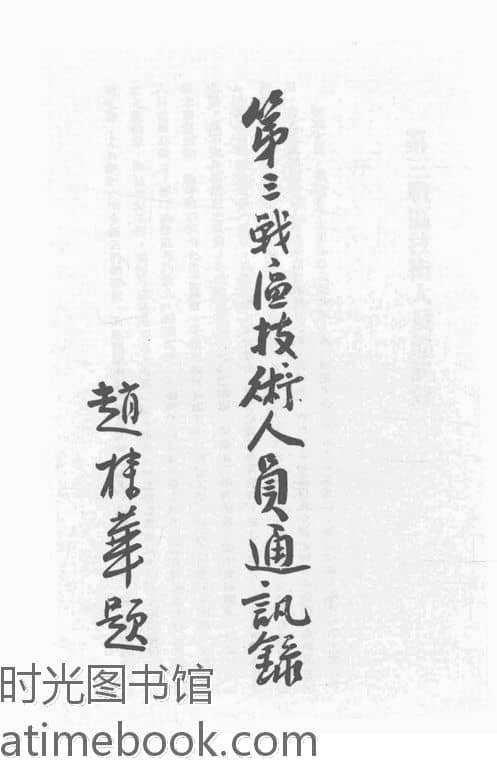 第三戰區技術人員通訊錄
趙桂華題
时光图书馆
atimebook.com